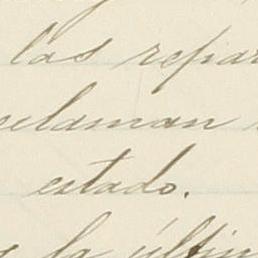 las repar
claman
estado.
la últim